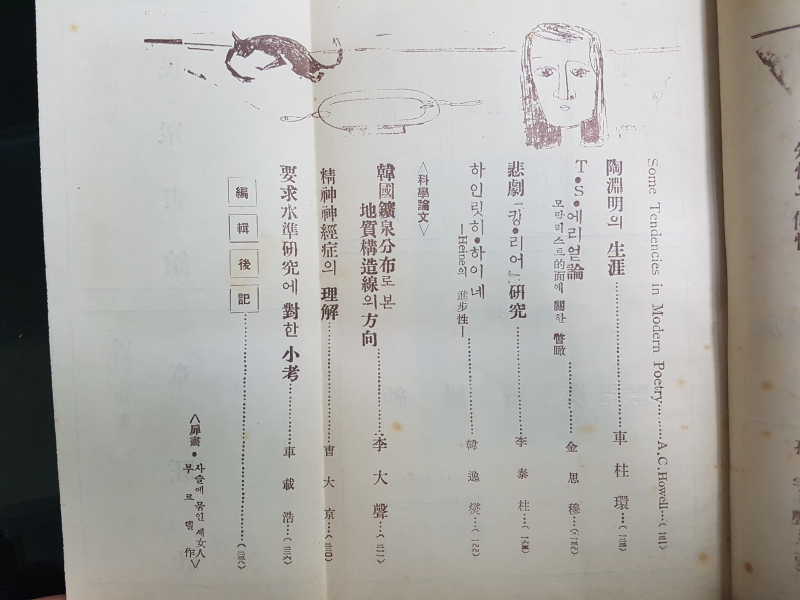 Some Tendencies in Modern Poetry……A.C.Howell…
陶淵明의 生涯……車柱環…
T•S•에리얻論
모랄리스트的面에 關한 瞥瞰……金思穆…
悲劇『킹•리어』研究……李泰柱…
하인릿히•하이네
—Heine의 進步性—
韓逸燮…
〈科學論文〉
韓國鑛泉分布로 본
地質構造線의 方向……李大聲…
精神神經症의 理解……曺大京…
要求水準研究에 對한 小考……車載浩…
編輯後記……
〈扉畵•사슬에 묶인 세女人
作〉